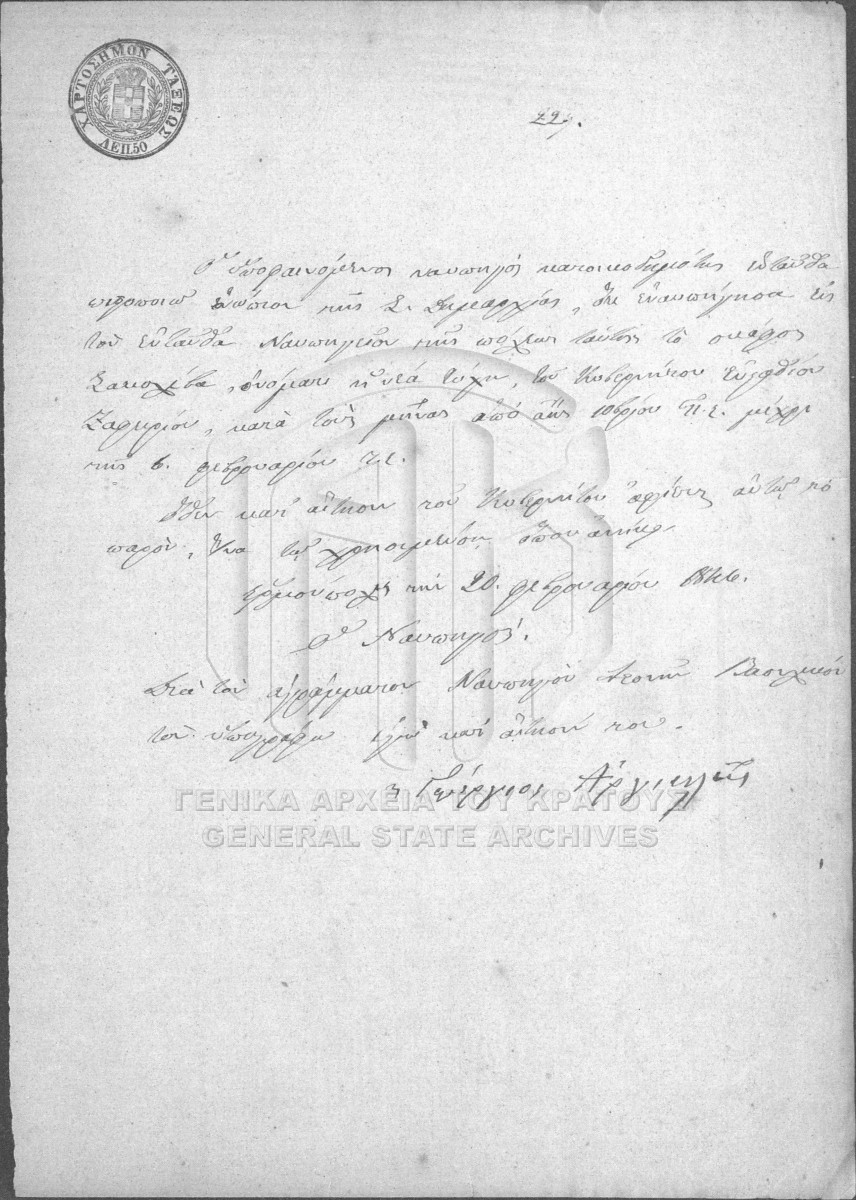 ΧΑΡΤΟΣΗΜΟΝ ΤΑΞΕΩΣ
ΛΕΠ.50
Ὁ ὑποφαινόμενος ναυπηγός ἐνταῦθα
ἐνώπιον τῆς Δ. Δημαρχίας, ὅτι ἐναυπήγησα εἰς
τὸ ἐνταῦθα Ναυπηγεῖον τῆς πόλεως ταύτης τὸ σκάφος
Σακολέβα, ὀνόματι ἡ νέα τύχη, τοῦ Κυβερνήτου
κατὰ τοὺς μῆνας ἀπὸ τῆς 10βρίου π.έ. μέχρι
τῆς 6. φεβρουαρίου τ.έ.
Ὅθεν κατ' αἴτησιν τοῦ Κυβερνήτου αὐτῷ τὸ
παρὸν, ἵνα τῷ χρησιμεύσῃ ὅπου ἀνήκει.
Ἑρμούπολις τὴν 20. φεβρουαρίου
Ὁ Ναυπηγός.
Διὰ τὸν ἀγράμματον Ναυπηγὸν Βασιλικόν
τὸν ὑπογράφω ἐγὼ κατ' αἴτησίν του.
Γεώργιος
ΓΕΝΙΚΑ ΑΡΧΕΙΑ ΤΟΥ ΚΡΑΤΟΥΣ
GENERAL STATE ARCHIVES